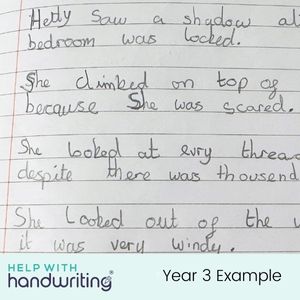 Hetty Saw a shadow
bedroom was locked.
She climbed on top of
because She was scared.
She looked at evry
despite there was
She Looked out of the
it was very windy.
HELP WITH
handwriting®
Year 3 Example